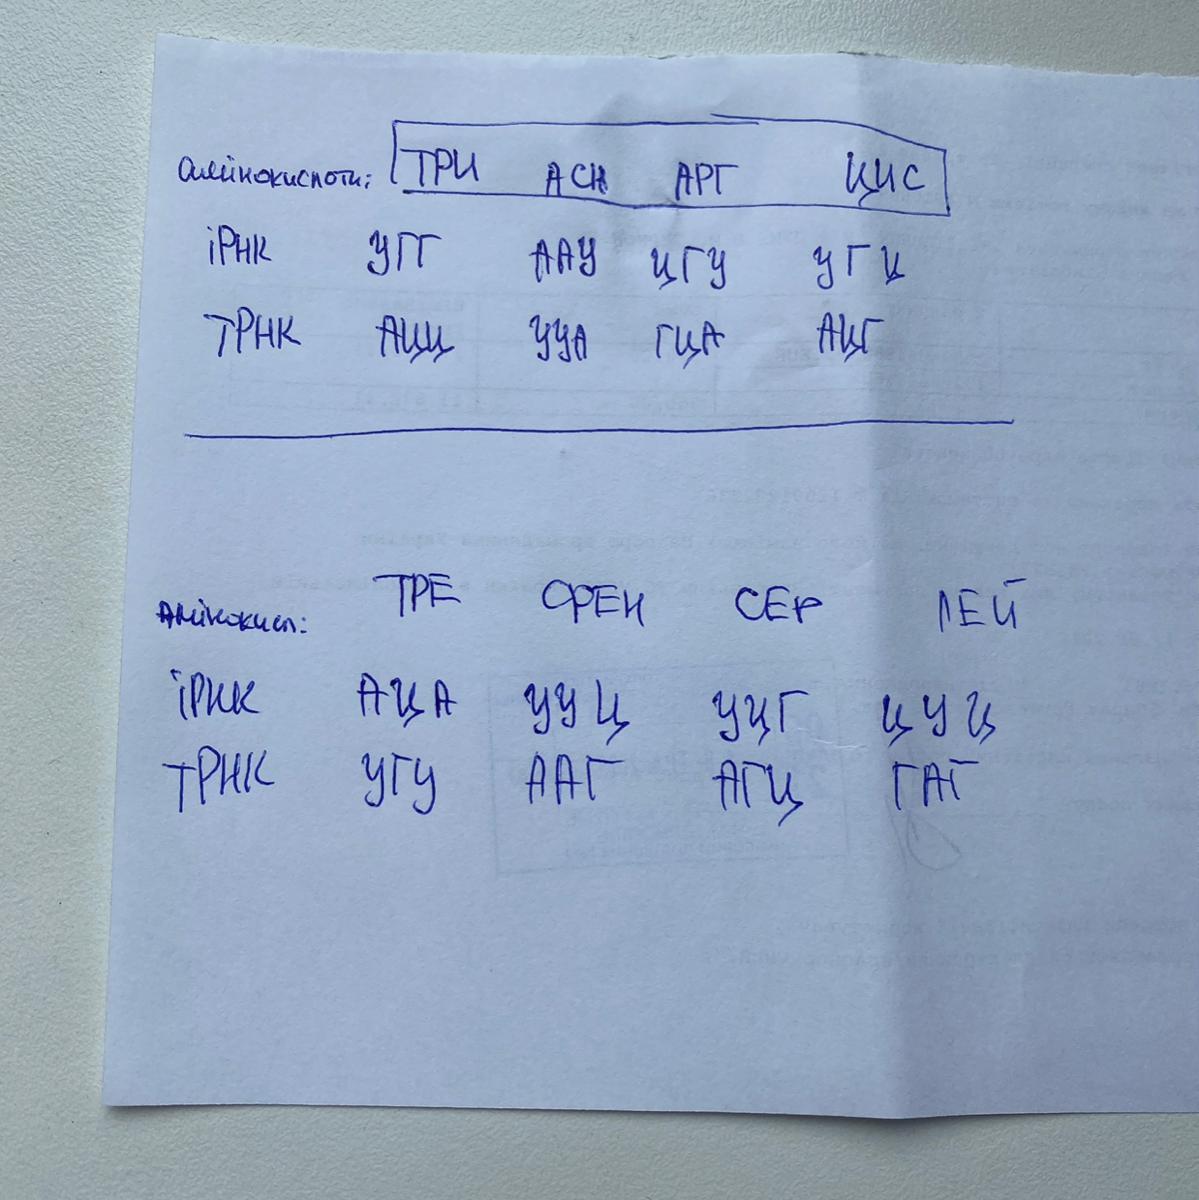 амінокислоти: ТРИ АСН АРГ ЦИС
іРНК УГГ ААУ ЦГУ УГЦ
ТРНК АЦЦ УУА ГЦА АЦГ
Амінокисл: ТРЕ ФЕН СЕР ЛЕЙ
іРНК АЦА УУЦ УЦГ ЦУЦ
тРНК УГУ ААГ АГЦ ГАГ